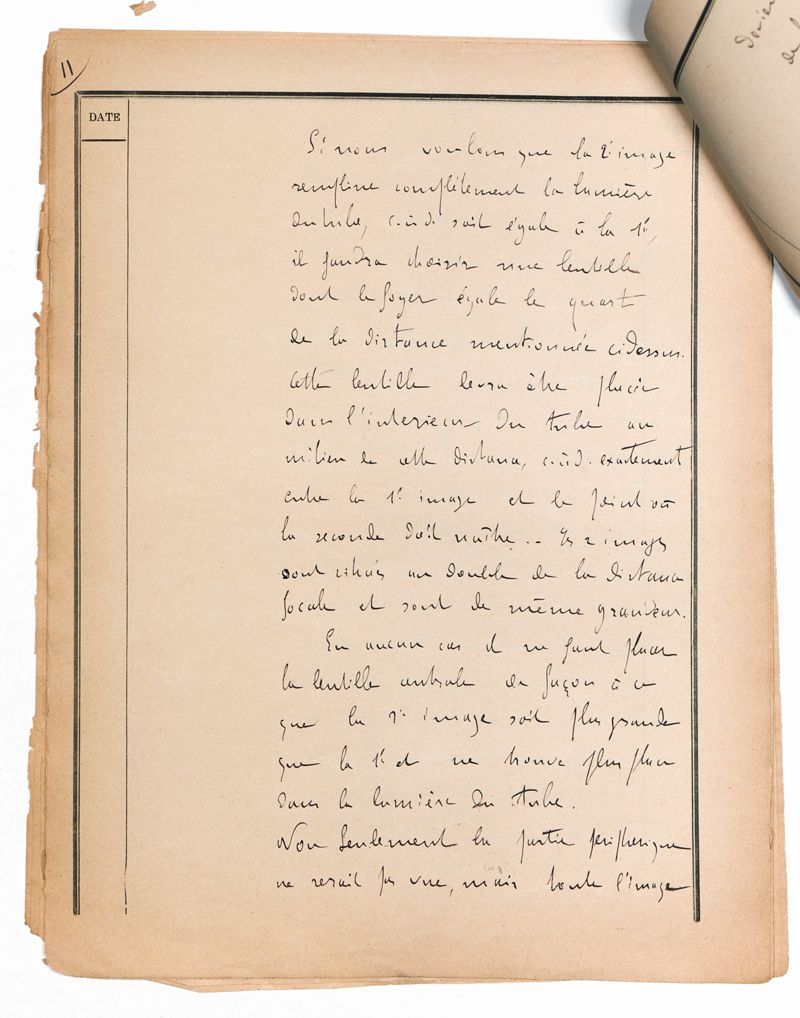 11
DATE
Si nous voulons que la 2e image
remplisse complètement la lumière
du tube, c.à.d. soit égale à la 1e,
il faudra choisir une lentille
dont le foyer égale le quart
de la distance mentionnée ci dessus.
Cette lentille devra être placée
dans l'interieur du tube au
milieu de cette distance, c.à.d. exactement
entre la 1e image et le point où
la seconde doit naître. - Les 2 images
sont situés au double de la distance
focale et sont de même grandeur.
En aucun cas il ne faut placer
la lentille centrale de façon à ce
que la 2e image soit plus grande
que la 1e et ne trouve plus place
dans la lumière du tube.
Non seulement la partie peripherique
ne serait pas vue, mais toute l'image